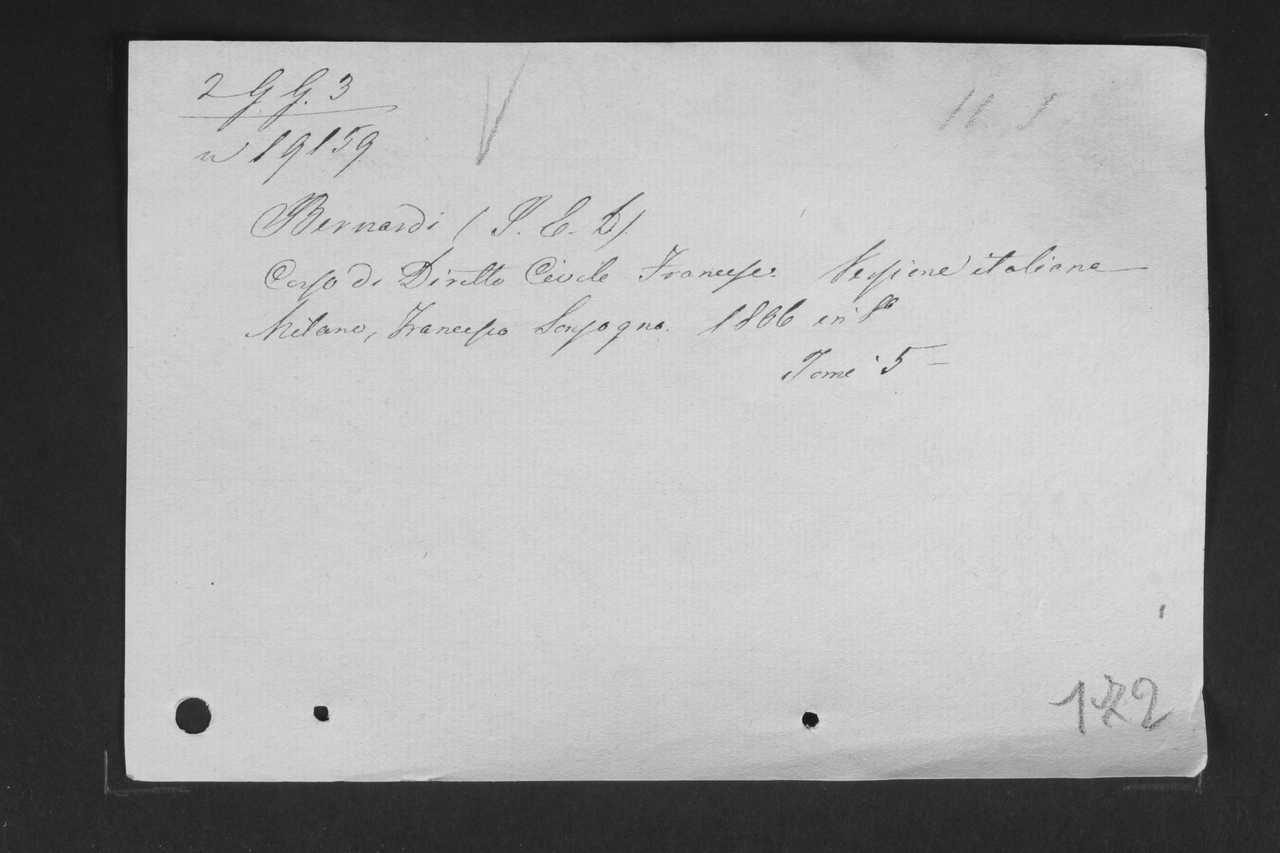 2 G. G. 3
n 19159
Bernardi (J. E. D).
Corso di Diritto Civile Francese. Versione italiana
Milano, Francesco Sonzogno. 1806 in 8º
Tomi 5
172